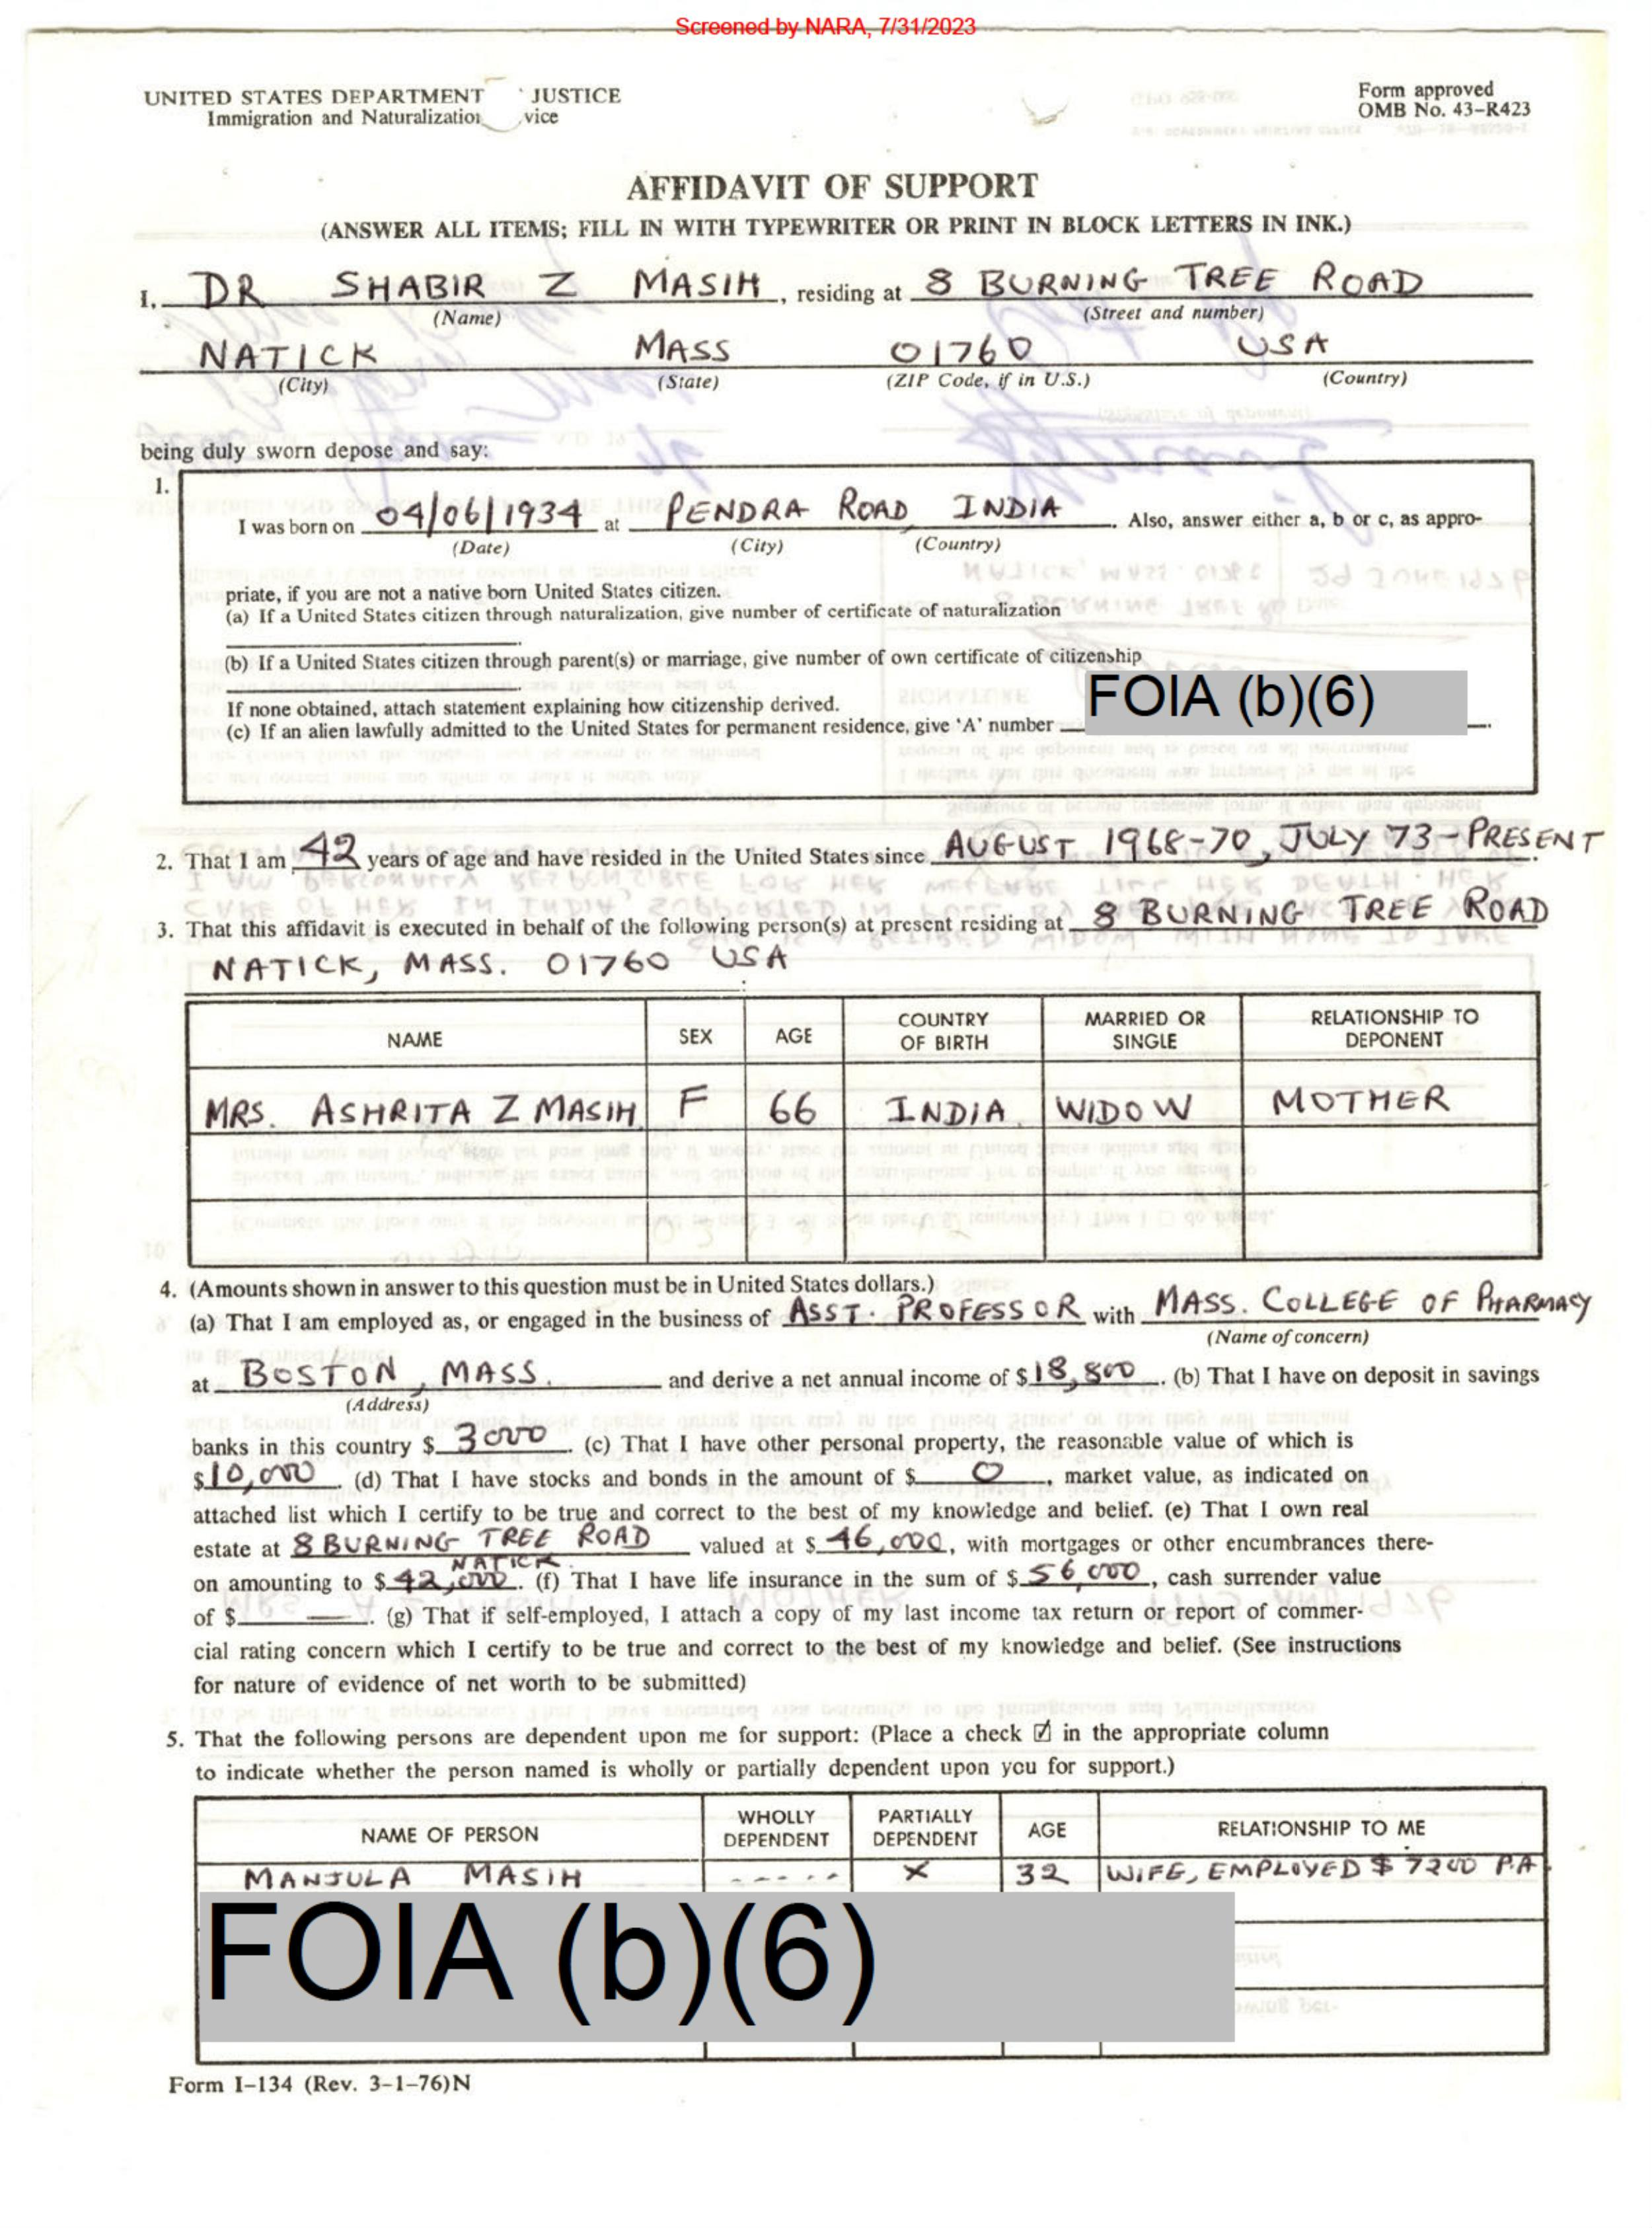 Screened by NARA, 7/31/2023
UNITED STATES DEPARTMENT JUSTICE
Immigration and Naturalization vice
Form approved
OMB No. 43-R423
AFFIDAVIT OF SUPPORT
(ANSWER ALL ITEMS; FILL IN WITH TYPEWRITER OR PRINT IN BLOCK LETTERS IN INK.)
I, DR SHABIR Z MASIH, residing at 8 BURNING TREE ROAD
(Name) (Street and number)
NATICK MASS 01760 USA
(City) (State) (ZIP Code, if in U.S.) (Country)
being duly sworn depose and say:
1.
I was born on 04/06/1934 at PENDRA ROAD, INDIA. Also, answer either a, b or c, as appro-
(Date) (City) (Country)
priate, if you are not a native born United States citizen.
(a) If a United States citizen through naturalization, give number of certificate of naturalization
(b) If a United States citizen through parent(s) or marriage, give number of own certificate of citizenship
If none obtained, attach statement explaining how citizenship derived.
(c) If an alien lawfully admitted to the United States for permanent residence, give 'A' number FOIA (b)(6).
2. That I am 42 years of age and have resided in the United States since AUGUST 1968-70, JULY 73-PRESENT
3. That this affidavit is executed in behalf of the following person(s) at present residing at 8 BURNING TREE ROAD
NATICK, MASS. 01760 USA
NAME SEX AGE COUNTRY OF BIRTH MARRIED OR SINGLE RELATIONSHIP TO DEPONENT
MRS. ASHRITA Z MASIH F 66 INDIA WIDOW MOTHER
4. (Amounts shown in answer to this question must be in United States dollars.)
(a) That I am employed as, or engaged in the business of ASST. PROFESSOR with MASS. COLLEGE OF PHARMACY
(Name of concern)
at BOSTON, MASS. and derive a net annual income of $18,800. (b) That I have on deposit in savings
(Address)
banks in this country $ 3000. (c) That I have other personal property, the reasonable value of which is
$10,000 (d) That I have stocks and bonds in the amount of $ 0, market value, as indicated on
attached list which I certify to be true and correct to the best of my knowledge and belief. (e) That I own real
estate at 8 BURNING TREE ROAD valued at $ 46,000, with mortgages or other encumbrances there-
NATICK.
on amounting to $42,000. (f) That I have life insurance in the sum of $56,000, cash surrender value
of $ —. (g) That if self-employed, I attach a copy of my last income tax return or report of commer-
cial rating concern which I certify to be true and correct to the best of my knowledge and belief. (See instructions
for nature of evidence of net worth to be submitted)
5. That the following persons are dependent upon me for support: (Place a check ☑ in the appropriate column
to indicate whether the person named is wholly or partially dependent upon you for support.)
NAME OF PERSON WHOLLY DEPENDENT PARTIALLY DEPENDENT AGE RELATIONSHIP TO ME
MANJULA MASIH ----- X 32 WIFE, EMPLOYED $ 7200 P.A.
FOIA (b)(6)
Form I-134 (Rev. 3-1-76)N